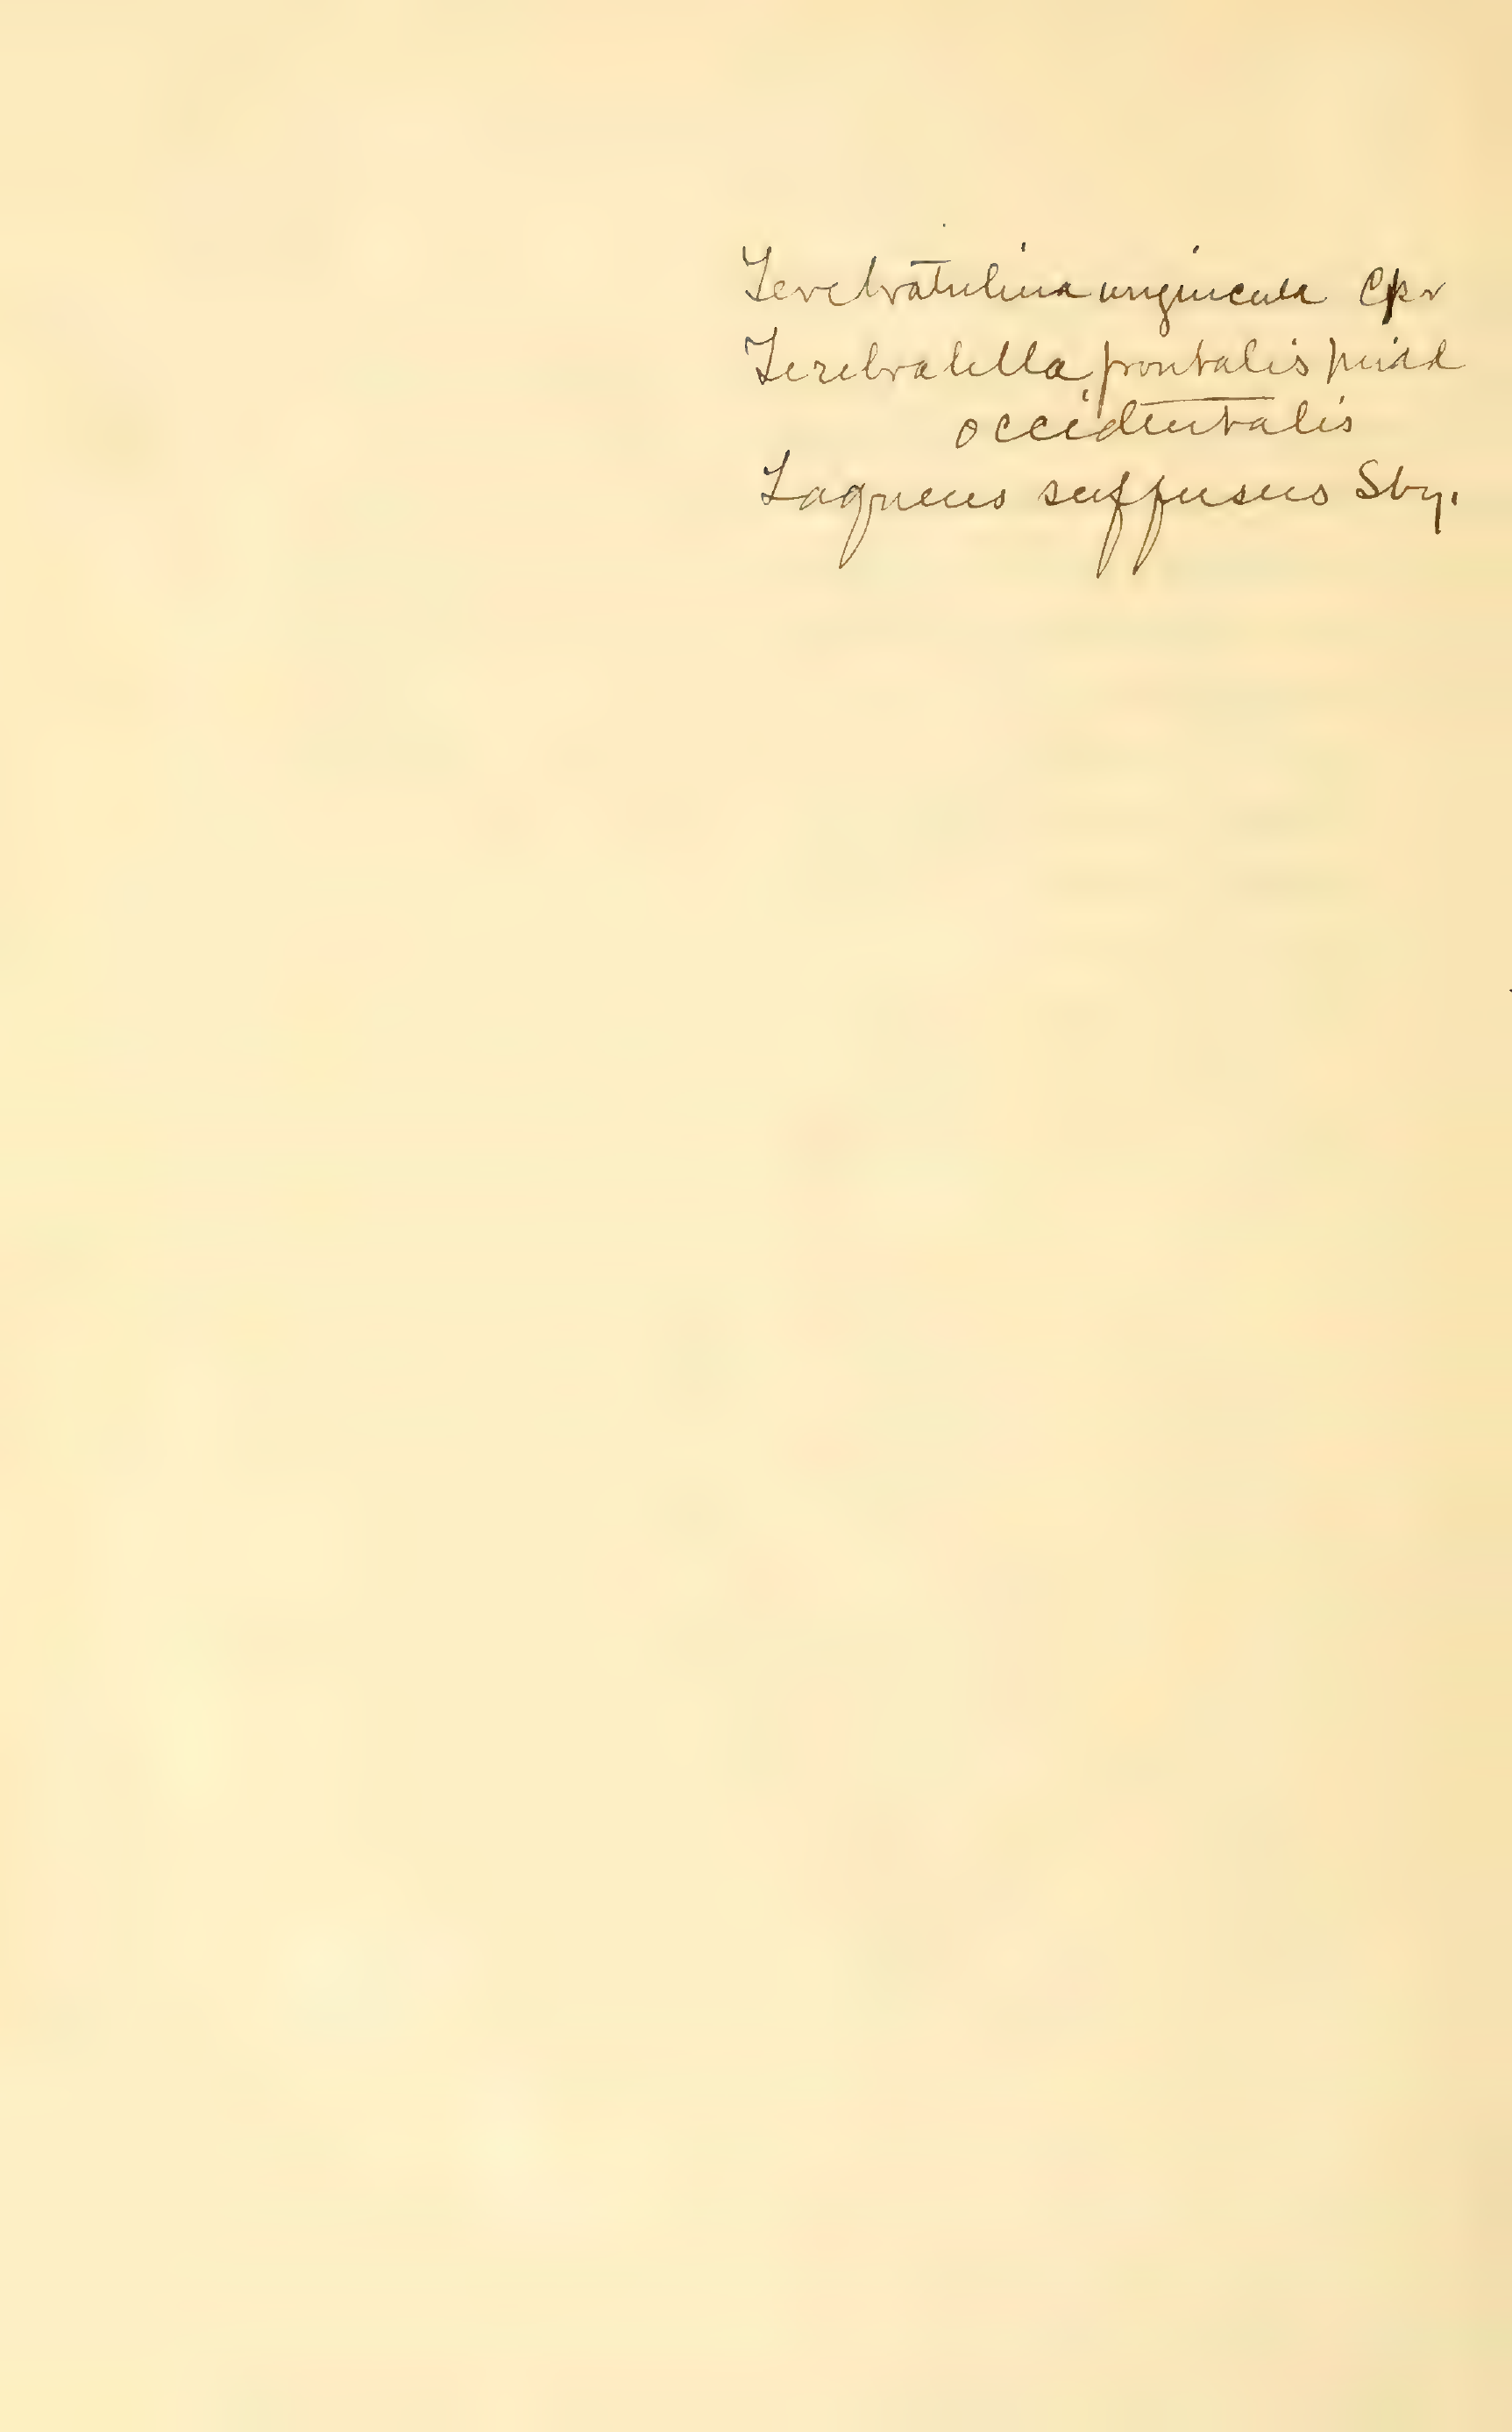 Terebratulina unguicula Cpr
Terebratella frontalis Midd
occidentalis
Laqueus suffusus Sby.